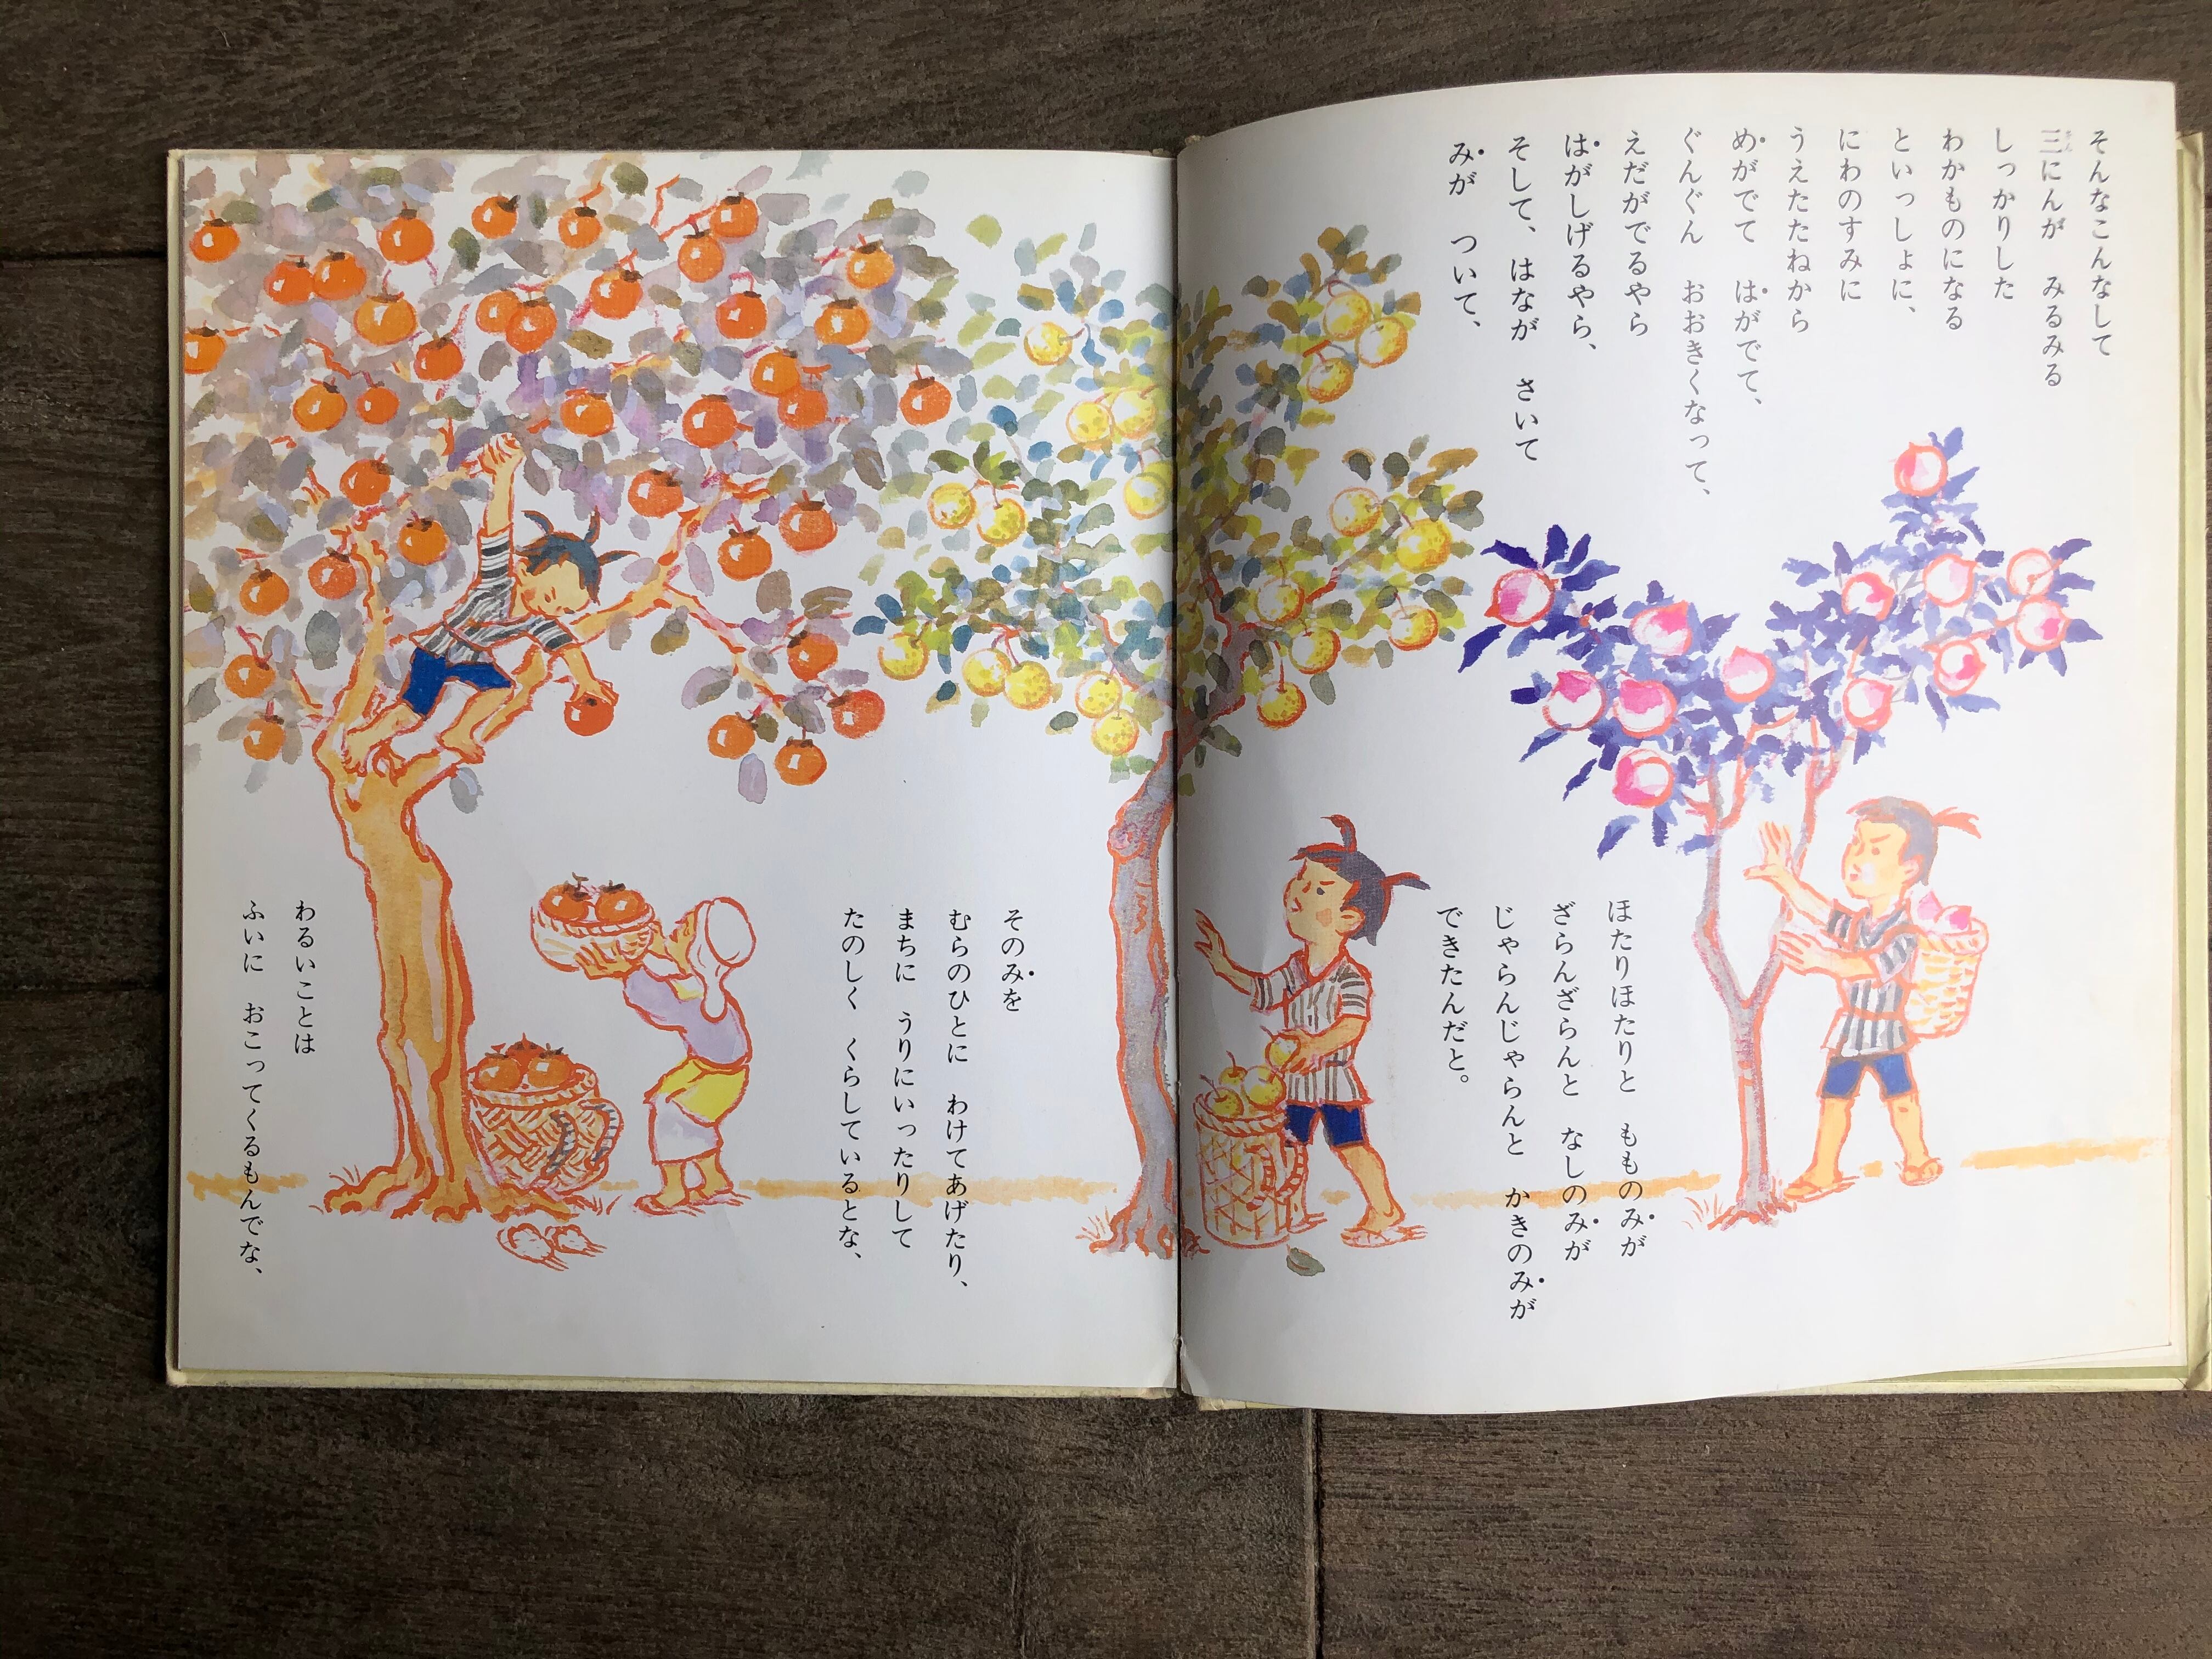 そんなこんなして
三にんが　みるみる
しっかりした
わかものになる
といっしょに、
にわのすみに
うえたたねから
めがでて　はがでて、
ぐんぐん　おおきくなって、
えだがでるやら
はがしげるやら、
そして、はなが　さいて
みが　ついて、
ほたりほたりと　もものみが
ざらんざらんと　なしのみが
じゃらんじゃらんと　かきのみが
できたんだと。
そのみを
むらのひとに　わけてあげたり、
まちに　うりにいったりして
たのしく　くらしているとな、
わるいことは
ふいに　おこってくるもんでな、